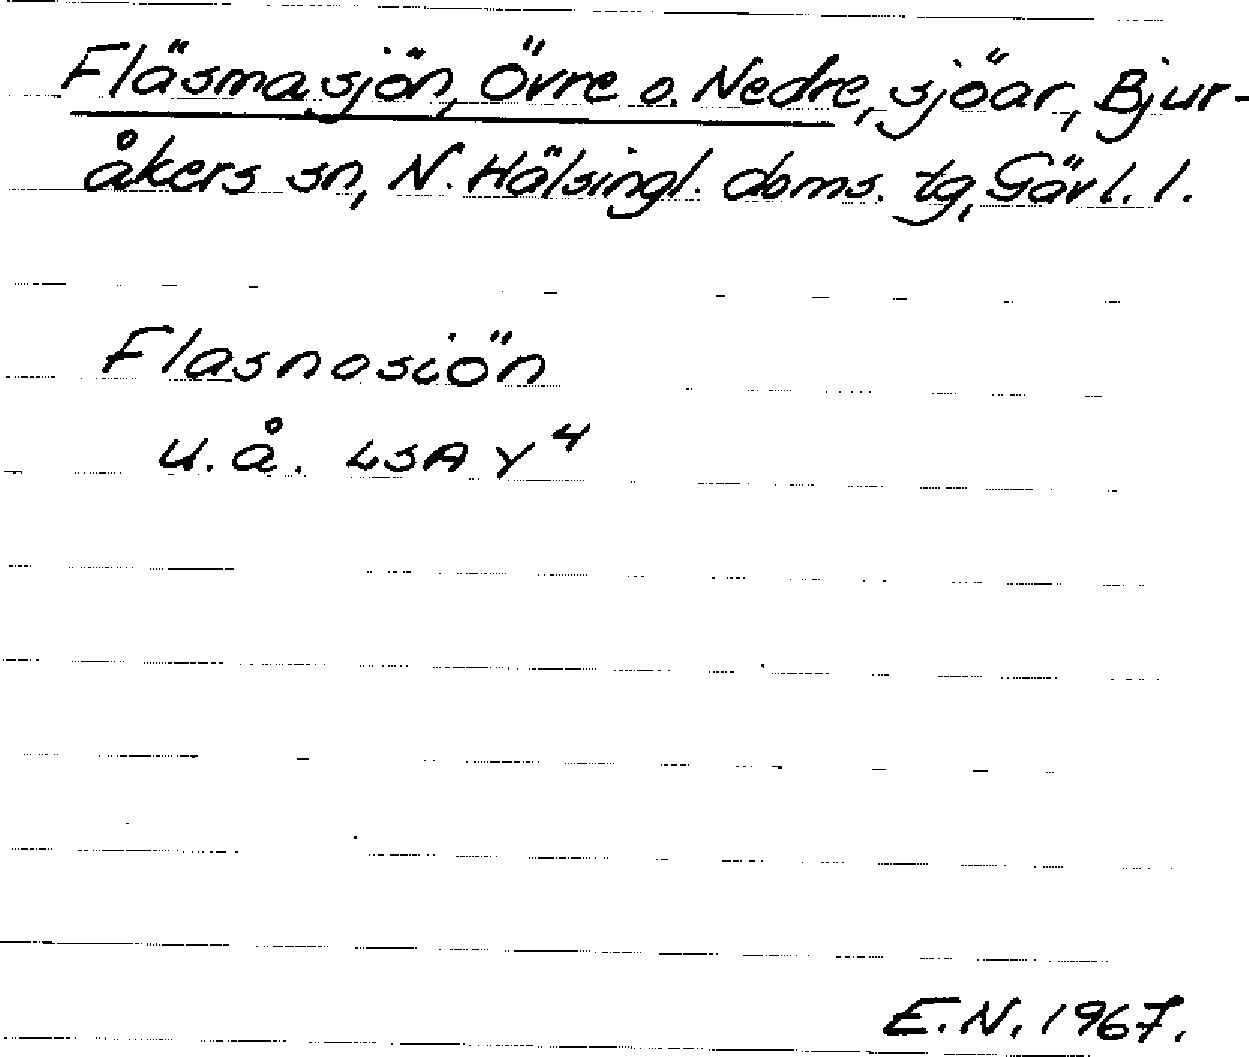 Fläsmasjön, Övre o. Nedre, sjöar, Bjur-
åkers sn, N. Hälsingl. doms. tg, Gävl. l.
Flasnosiön
u.å. LSA Y4
E.N. 1967.